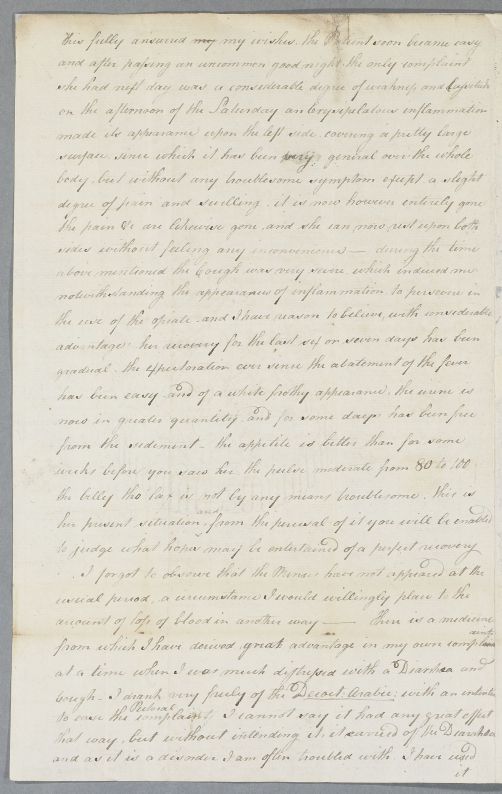 This fully answered my my wishes. the Patient soon became easy
and after passing an uncommon good night the only complaint
she had next day was a considerable degree of weakness and Lassitude
on the afternoon of the Saturday an Erysipelatous inflammation
made its appearance upon the left side covering a pretty large
surface since which it has been very general over the whole
body, but without any troublesome symptom except a slight
degree of pain and swelling. it is now however entirely gone
the pain &c are likewise gone, and she can now rest upon both
sides without feeling any inconvenience — during the time
above mentioned the Cough was very severe which induced me
notwithstanding the appearance of inflammation to persevere in
the use of the opiate and I have reason to believe, with considerable
advantage. her recovery for the last six or seven days has been
gradual. the expectoration ever since the abatement of the fever
has been easy and of a white frothy appearance. the urine is
now in greater quantity and for some days has been free
from the sediment. the appetite is better than for some
weeks before you saw her the pulse moderate from 80 to 100
the belly tho' lax is not by any means troublesome. this is
her present situation, and from the perusal of it you will be enabled
to judge what hopes may be entertained of a perfect recovery
. . I forgot to observe that the Menses have not appeared at the
usual period, a circumstance I would willingly place to the
account of loss of blood in another way — there is a medicine
from which I have derived great advantage in my own complaints
at a time when I was much distressed with a Diarrhea and
Cough. I drank very freely of the Decoct. Arabic; with an intention
to ease the Pectoral complaint; I cannot say it had any great effect
that way, but without intending it, it cured of the Diarrhea
and as it is a disorder I am often troubled with, I have used
it